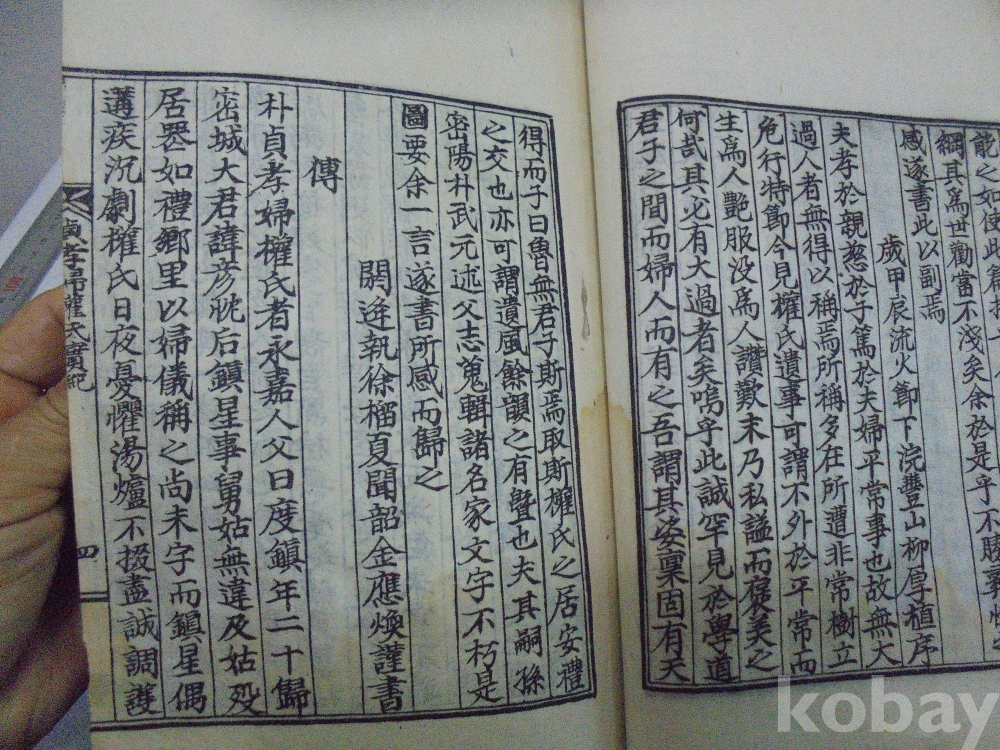 能之如使此篇
網其爲世勸當不淺矣余於是乎不
感遂書此以副焉
歲甲辰流火節下浣豐山柳厚植序
夫孝於親慈於子篤於夫婦平常事也故無大
過人者無得以稱焉所稱多在所遭非常樹立
危行特節今見權氏遺事可謂不外於平常而
生爲人艶服没爲人讚歎末乃私謚而襃美之
何哉其必有大過者矣嗚乎此誠罕見於學道
君子之間而婦人而有之吾謂其姿稟固有天
得而子曰魯無君子斯焉取斯權氏之居安禮
之交也亦可謂遺風餘韻之有曁也夫其嗣孫
密陽朴武元述父志蒐輯諸名家文字不朽是
圖要余一言遂書所感而歸之
閼逢執徐榴夏聞韶金應煥謹書
傳
朴貞孝婦權氏者永嘉人父曰度鎭年二十歸
密城大君諱彦忱后鎭星事舅姑無違及姑歿
居喪如禮鄉里以婦儀稱之尚未字而鎭星偶
遘疾沉劇權氏日夜憂懼湯爐不掇盡誠調護
貞孝婦權氏實紀
四
kobay